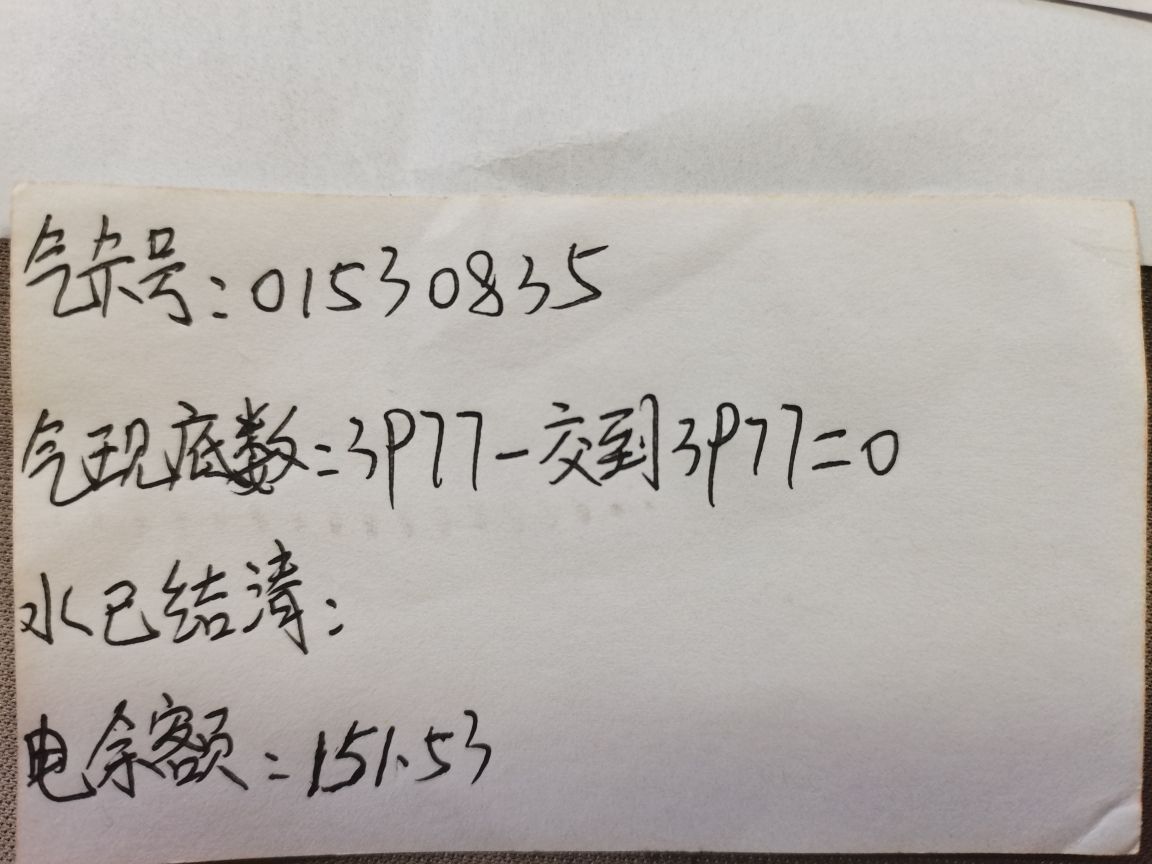 气表号:01530835
气现底数:3977-交到3977=0
水已结清:
电余额:151.53